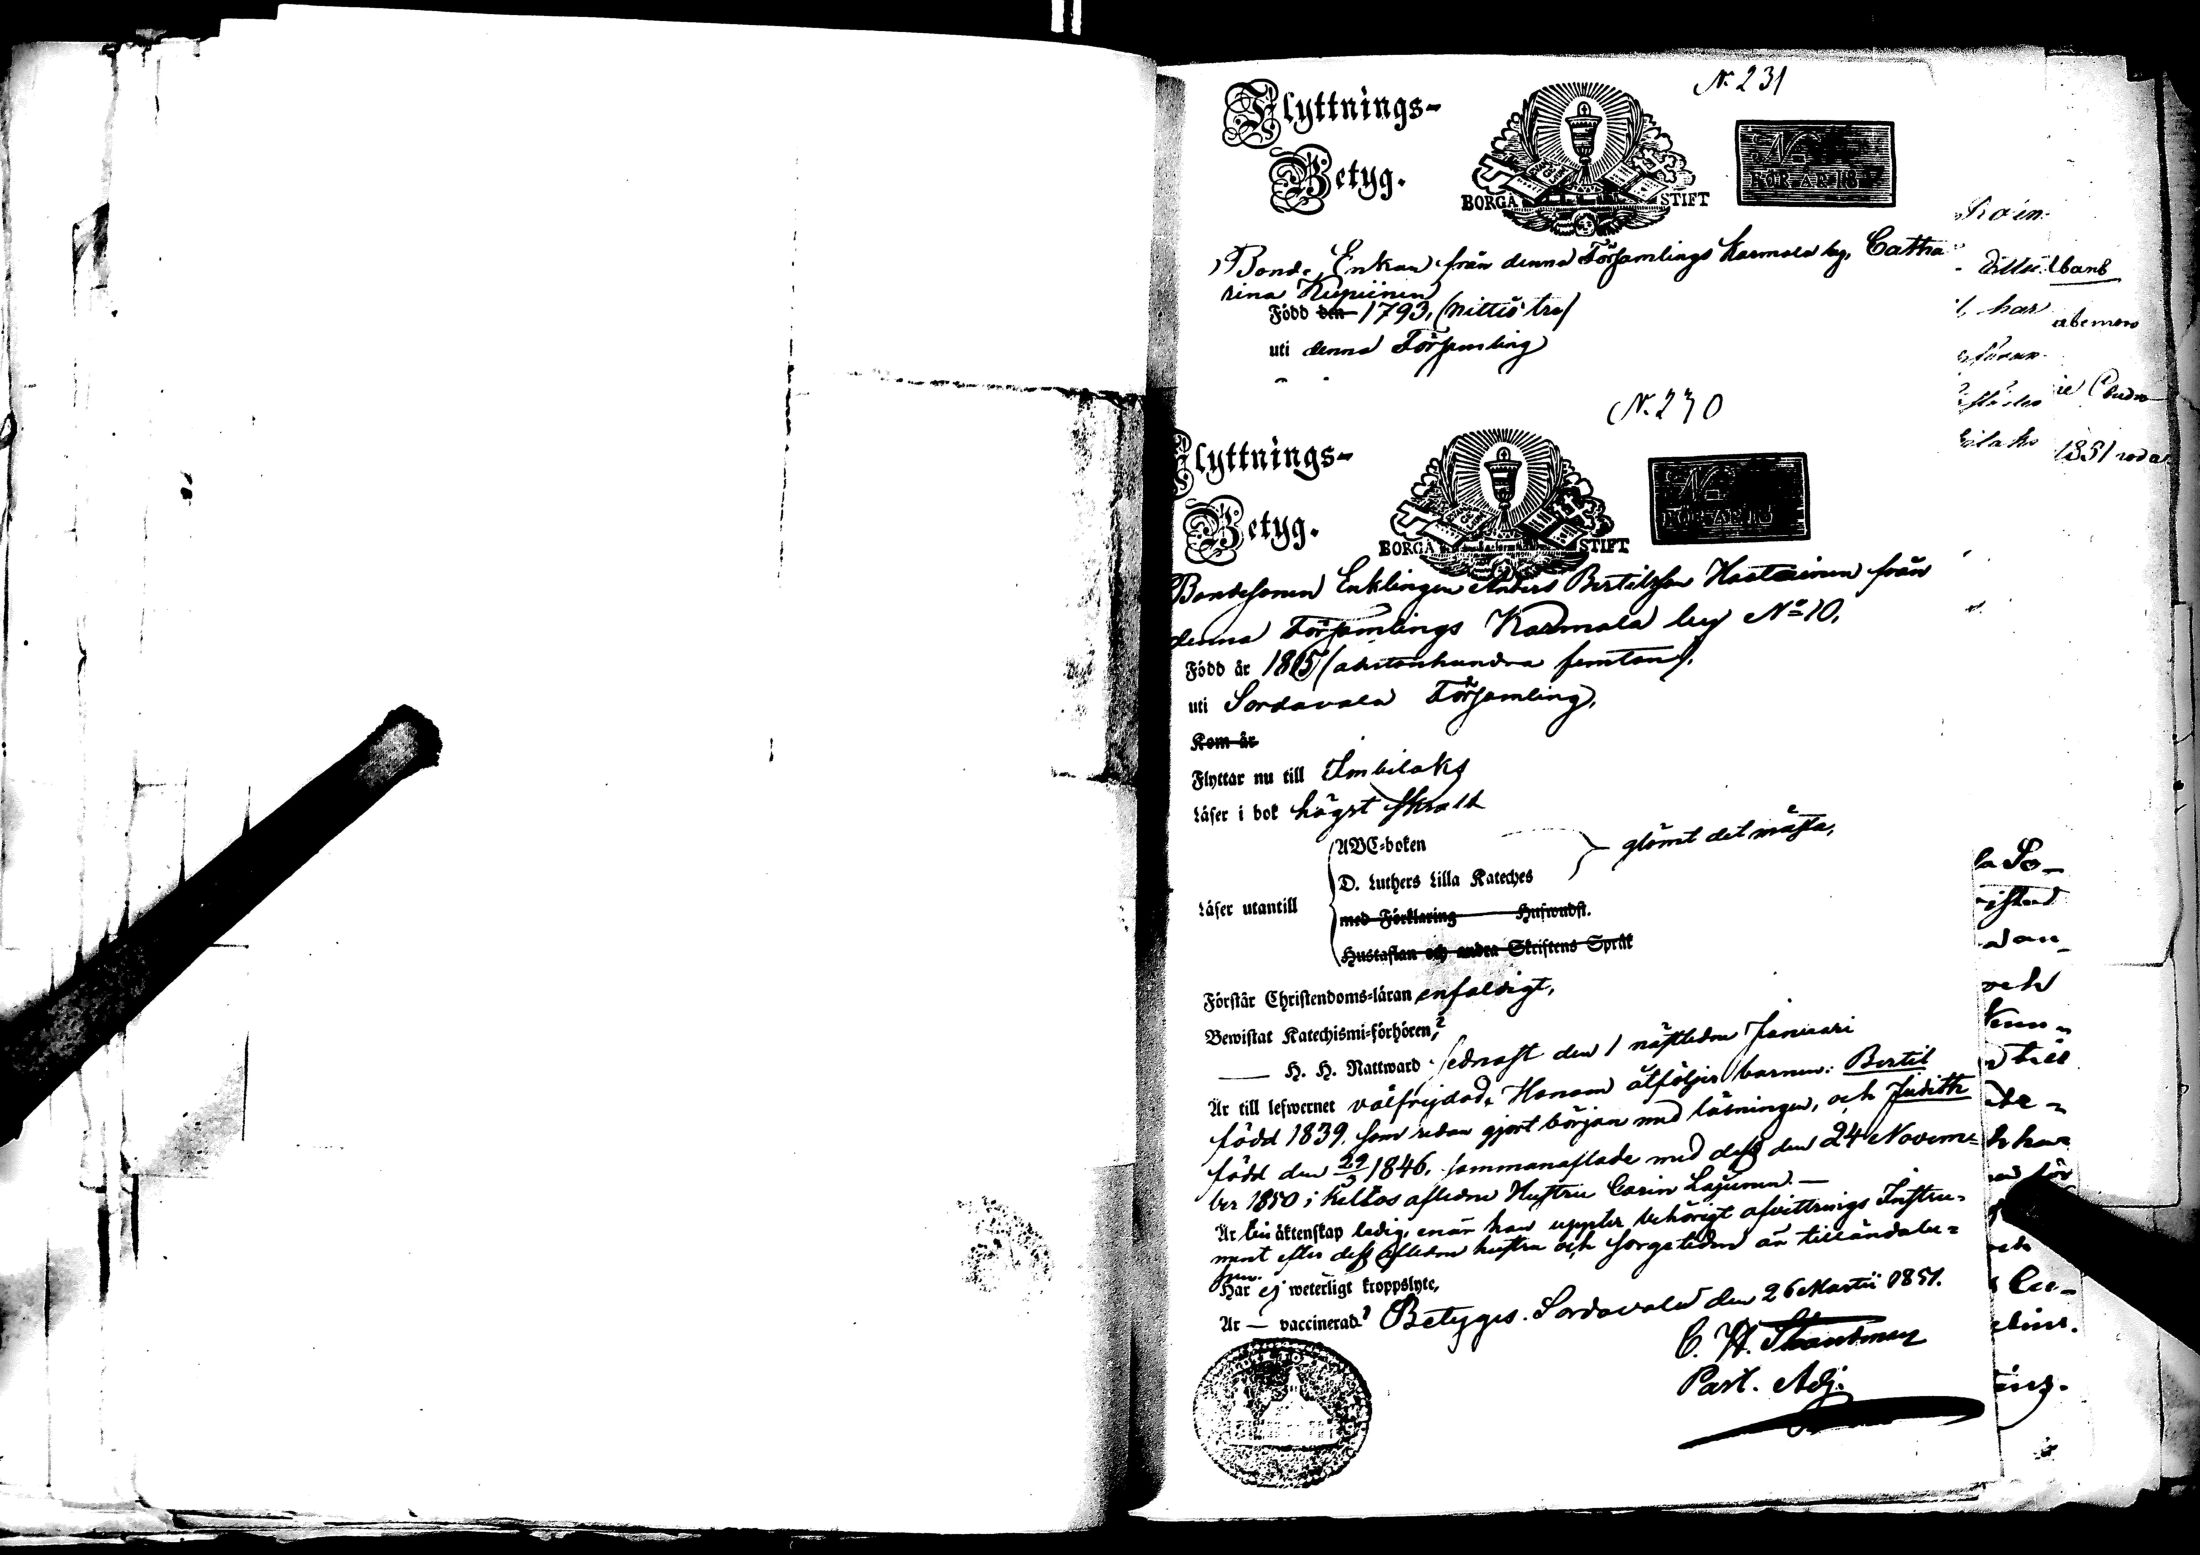 N. 231
Flyttnings-
Betyg.
BORGÅ STIFT
FÖR ÅR 18
Bonde Enkan från denna Församlings Karmala by, Catha
rina
Född den 1793, (nittio tre)
uti denna Församling
N. 230
Flyttnings-
Betyg.
BORGÅ STIFT
FÖR ÅR 18
Bondesonen Enklingen Anders Bertilsson Hostainen från
denna Församlings Karmala by No 10.
Född år 1815 (adertonhundra femton).
uti Sordavala Församling,
Kom år
Flyttar nu till Imbilaks
Läser i bok högst skralt
ABC-boken
glömt det mästa,
D. Luthers Lilla Kateches
Läser utantill
med Förklaring Huswudst.
Hustaflan och andra Skriftens Språk
Förstår Christendoms-läran enfaldigt,
Bewistat Katechismi-förhören,?
H. H. Nattward sednast den 1 nästledne Januari
Är till lefwernet välfrejdad. Honom åtfölja barnen: Bertil
född 1839. som redan gjort början med läsningen, och Judith
född den 29/3 1846. sammanaflade med dess den 24 Novem=
ber 1850 i Keltos aflidne Hustru Carin Lajunen. —
Är till äktenskap ledig, enär han uppter behörigt afvittrings Instru=
ment efter dess aflidna hustru och sorgetiden är tilländalu=
pen.
Har ej weterligt kroppslyte,
Är — vaccinerad? Betygas. Sordavala den 26 Martii 1851.
C. H.
Past. Adj.
har
1851
la So-
och
till
för